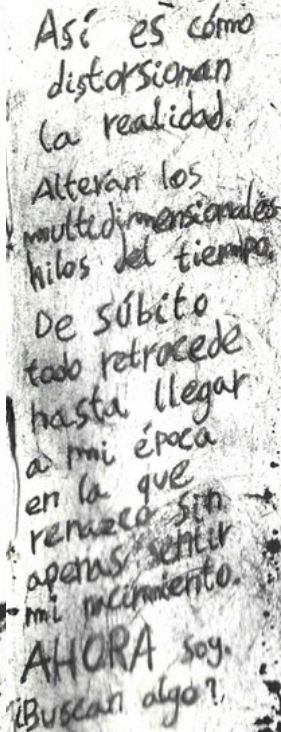 Así es cómo
distorsionan
la realidad.
Alteran los
multidimensionales
hilos del tiempo.
De súbito
todo retrocede
hasta llegar
a mi época
en la que
renazco sin
apenas sentir
mi nacimiento.
AHORA soy.
¿Buscan algo?